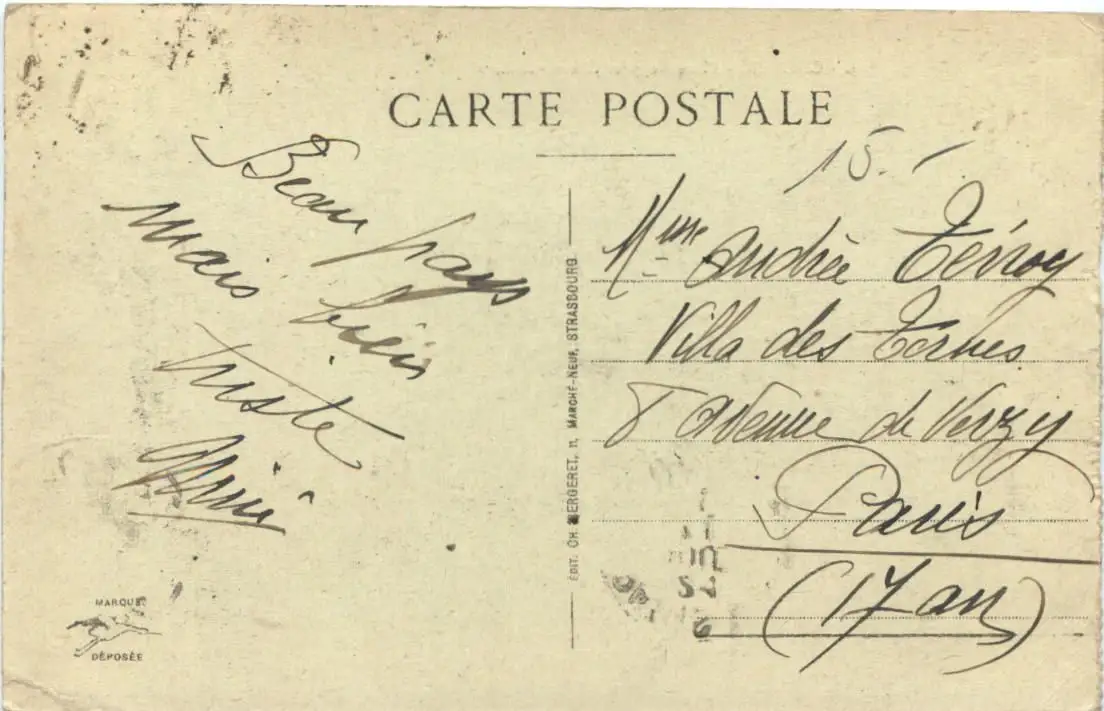 CARTE POSTALE
15.-
Beau pays
mais bien
triste
Mimi
Mme Andrée Térroy
Villa des Ternes
8 avenue de Verzy
Paris
(17 arr)
ÉDIT. CH. BERGERET, 11, MARCHÉ-NEUF, STRASBOURG
MARQUE
DÉPOSÉE